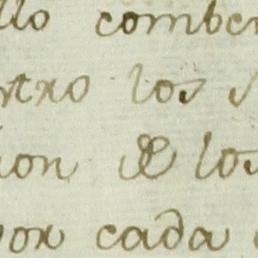 llo comben
ntro los s
ion de los
por cada